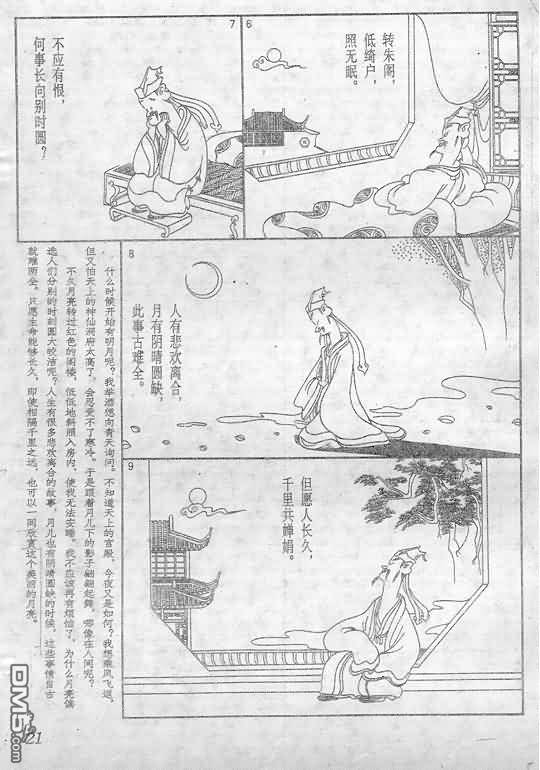 6
转朱阁,
低绮户,
照无眠。
7
不应有恨,
何事长向别时圆?
8
人有悲欢离合,
月有阴晴圆缺,
此事古难全。
9
但愿人长久,
千里共婵娟。
什么时候开始有明月呢?我举酒想向青天询问。不知道天上的宫殿,今夜又是如何?我想乘风飞返,
但又怕天上的神仙洞府太高了,会忍受不了寒冷。于是跟着月儿下的影子翩翩起舞,哪像在人间呢?
不久月亮转过红色的阁楼,低低地斜照入房内,使我无法安睡。我不应该再有烦恼了,为什么月亮偏
选人们分别的时刻圆大皎洁呢?人生有很多悲欢离合的故事,月儿也有阴晴圆缺的时候,这些事情自古
就难两全。只愿生命能够长久,即使相隔千里之远,也可以一同欣赏这个美丽的月亮。
DM5.com
21